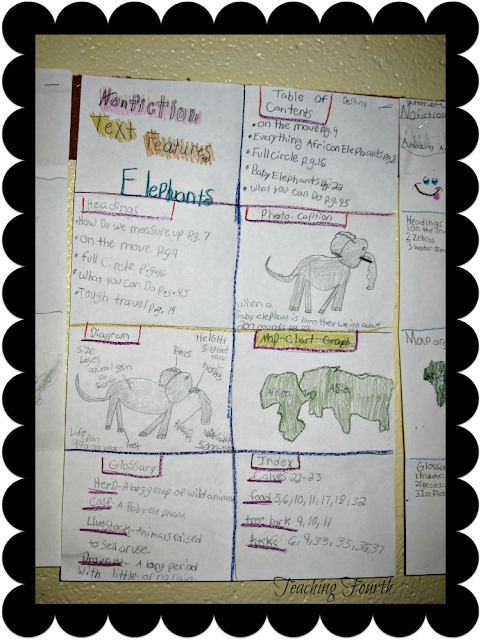 Nonfiction
Text Features
Elephants
Table of
Contents
Destiny
• on the move pg.4
• Everything African Elephants pg.8
• Full Circle p.g.16
• Baby Elephants pg.22
• what you can Do p.g.45
Headings
• How Do we measure up pg. 7
• on the move p.g4
• full Circle p.g.16
• What you can Do p.g.45
• Tough travel p.g.
Photo-Caption
when a
Baby elephant is born they weigh about
200 pounds
Diagram
Size
animal
Ears
Height
Tusks
Life
span
Feet
Map-Chart-Graph
Asia
Glossary
Herd-A larg group of wild animals
Calf-A Baby elephant
Livestock-Animals raised
to sell or use.
Drought-A long period
with little or no rain
Index
Calves 22-23
food 5,6,10,11,17,18,32
tree bark 9,10,11
tusks 6,9,33,35,36,37
Nofiction
Headings
2 Zebras
Map or
Glossa
Teaching Fourth